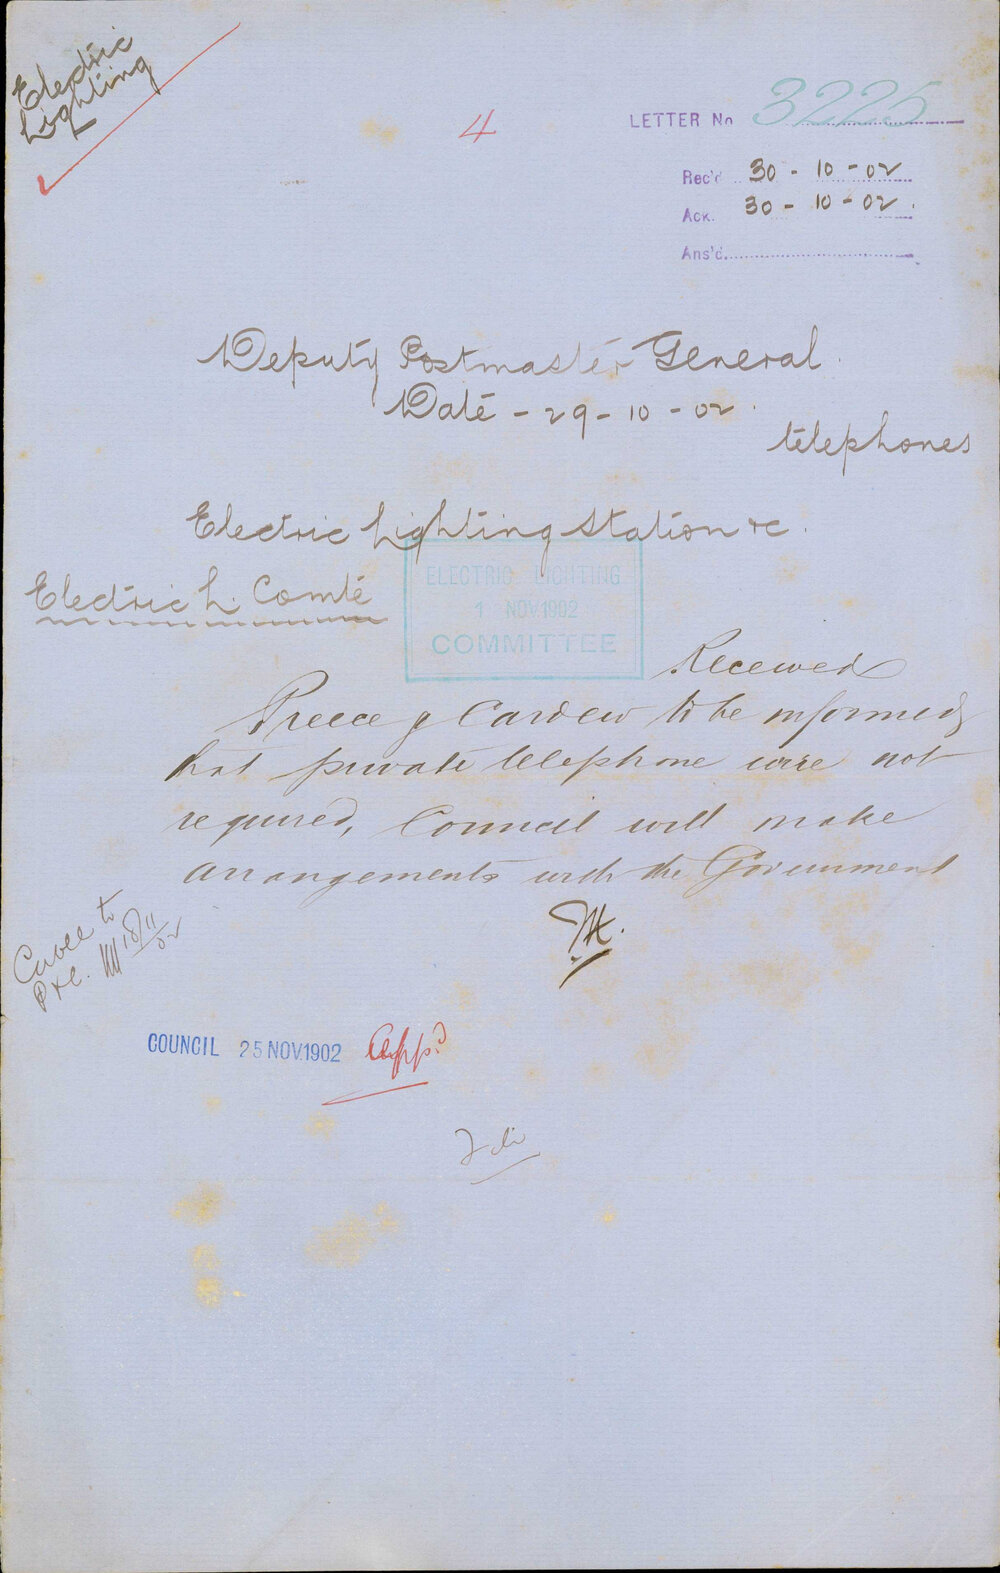 Electric
Lighting
4
LETTER No 3225
Rec'd 30 - 10 - 02
Ack. 30 - 10 - 02.
Ans'd.
Deputy Postmaster General.
Date - 29 - 10 - 02.
telephones
Electric Lighting Station &c.
Electric L. Comte
ELECTRIC LIGHTING
1 NOV 1902
COMMITTEE
Received
Preece & Cardew to be informed
that private telephone were not
required, Council will make
arrangements with the Government
Cable to
P & C. 10/11/02
COUNCIL 25 NOV.1902 App.d